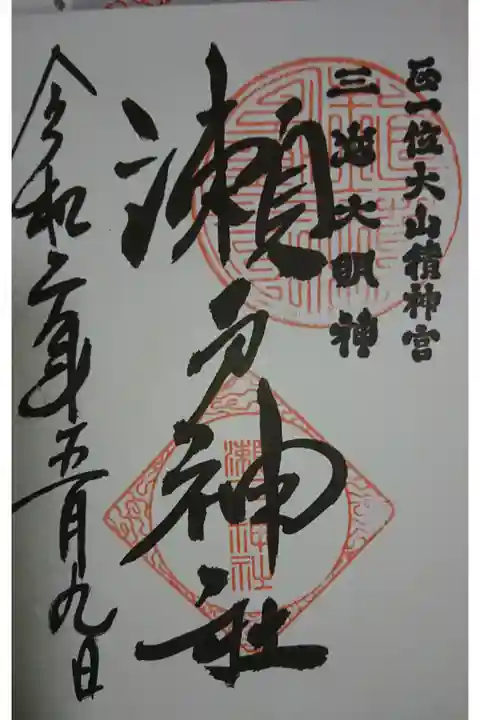 正一位大山積神宮
三島大明神
瀬戸神社
令和二年五月九日